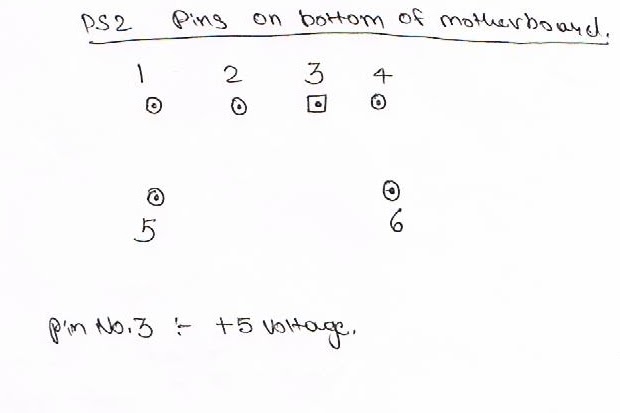 PS2 Pins on bottom of motherboard.
1 2 3 4
5 6
Pin No.3 :- +5 voltage.